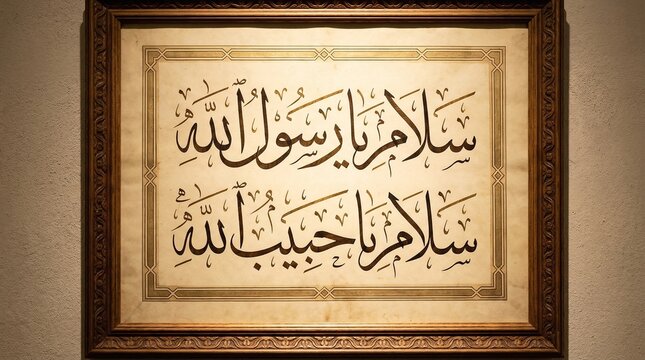 سَلَام يَا رَسُولُ اللَّهِ
سَلَام يَا حَبِيبُ اللَّهِ